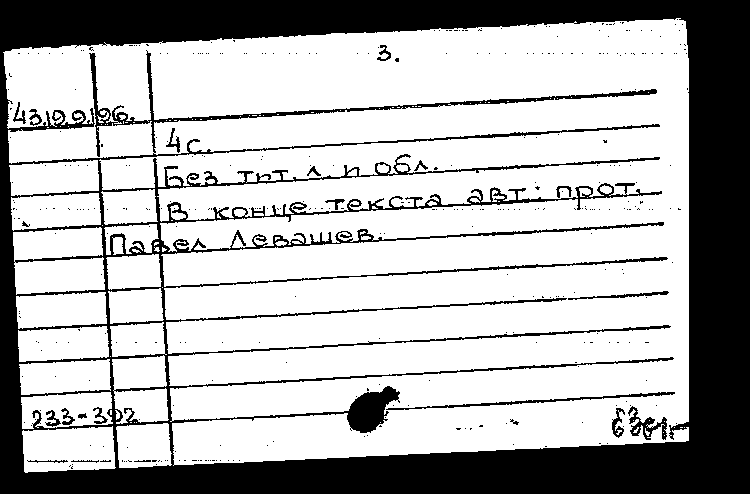 3.
43.19.9.196.
4с.
Без тит. л. и обл.
В конце текста авт: прот.
Павел Левашев.
233-392